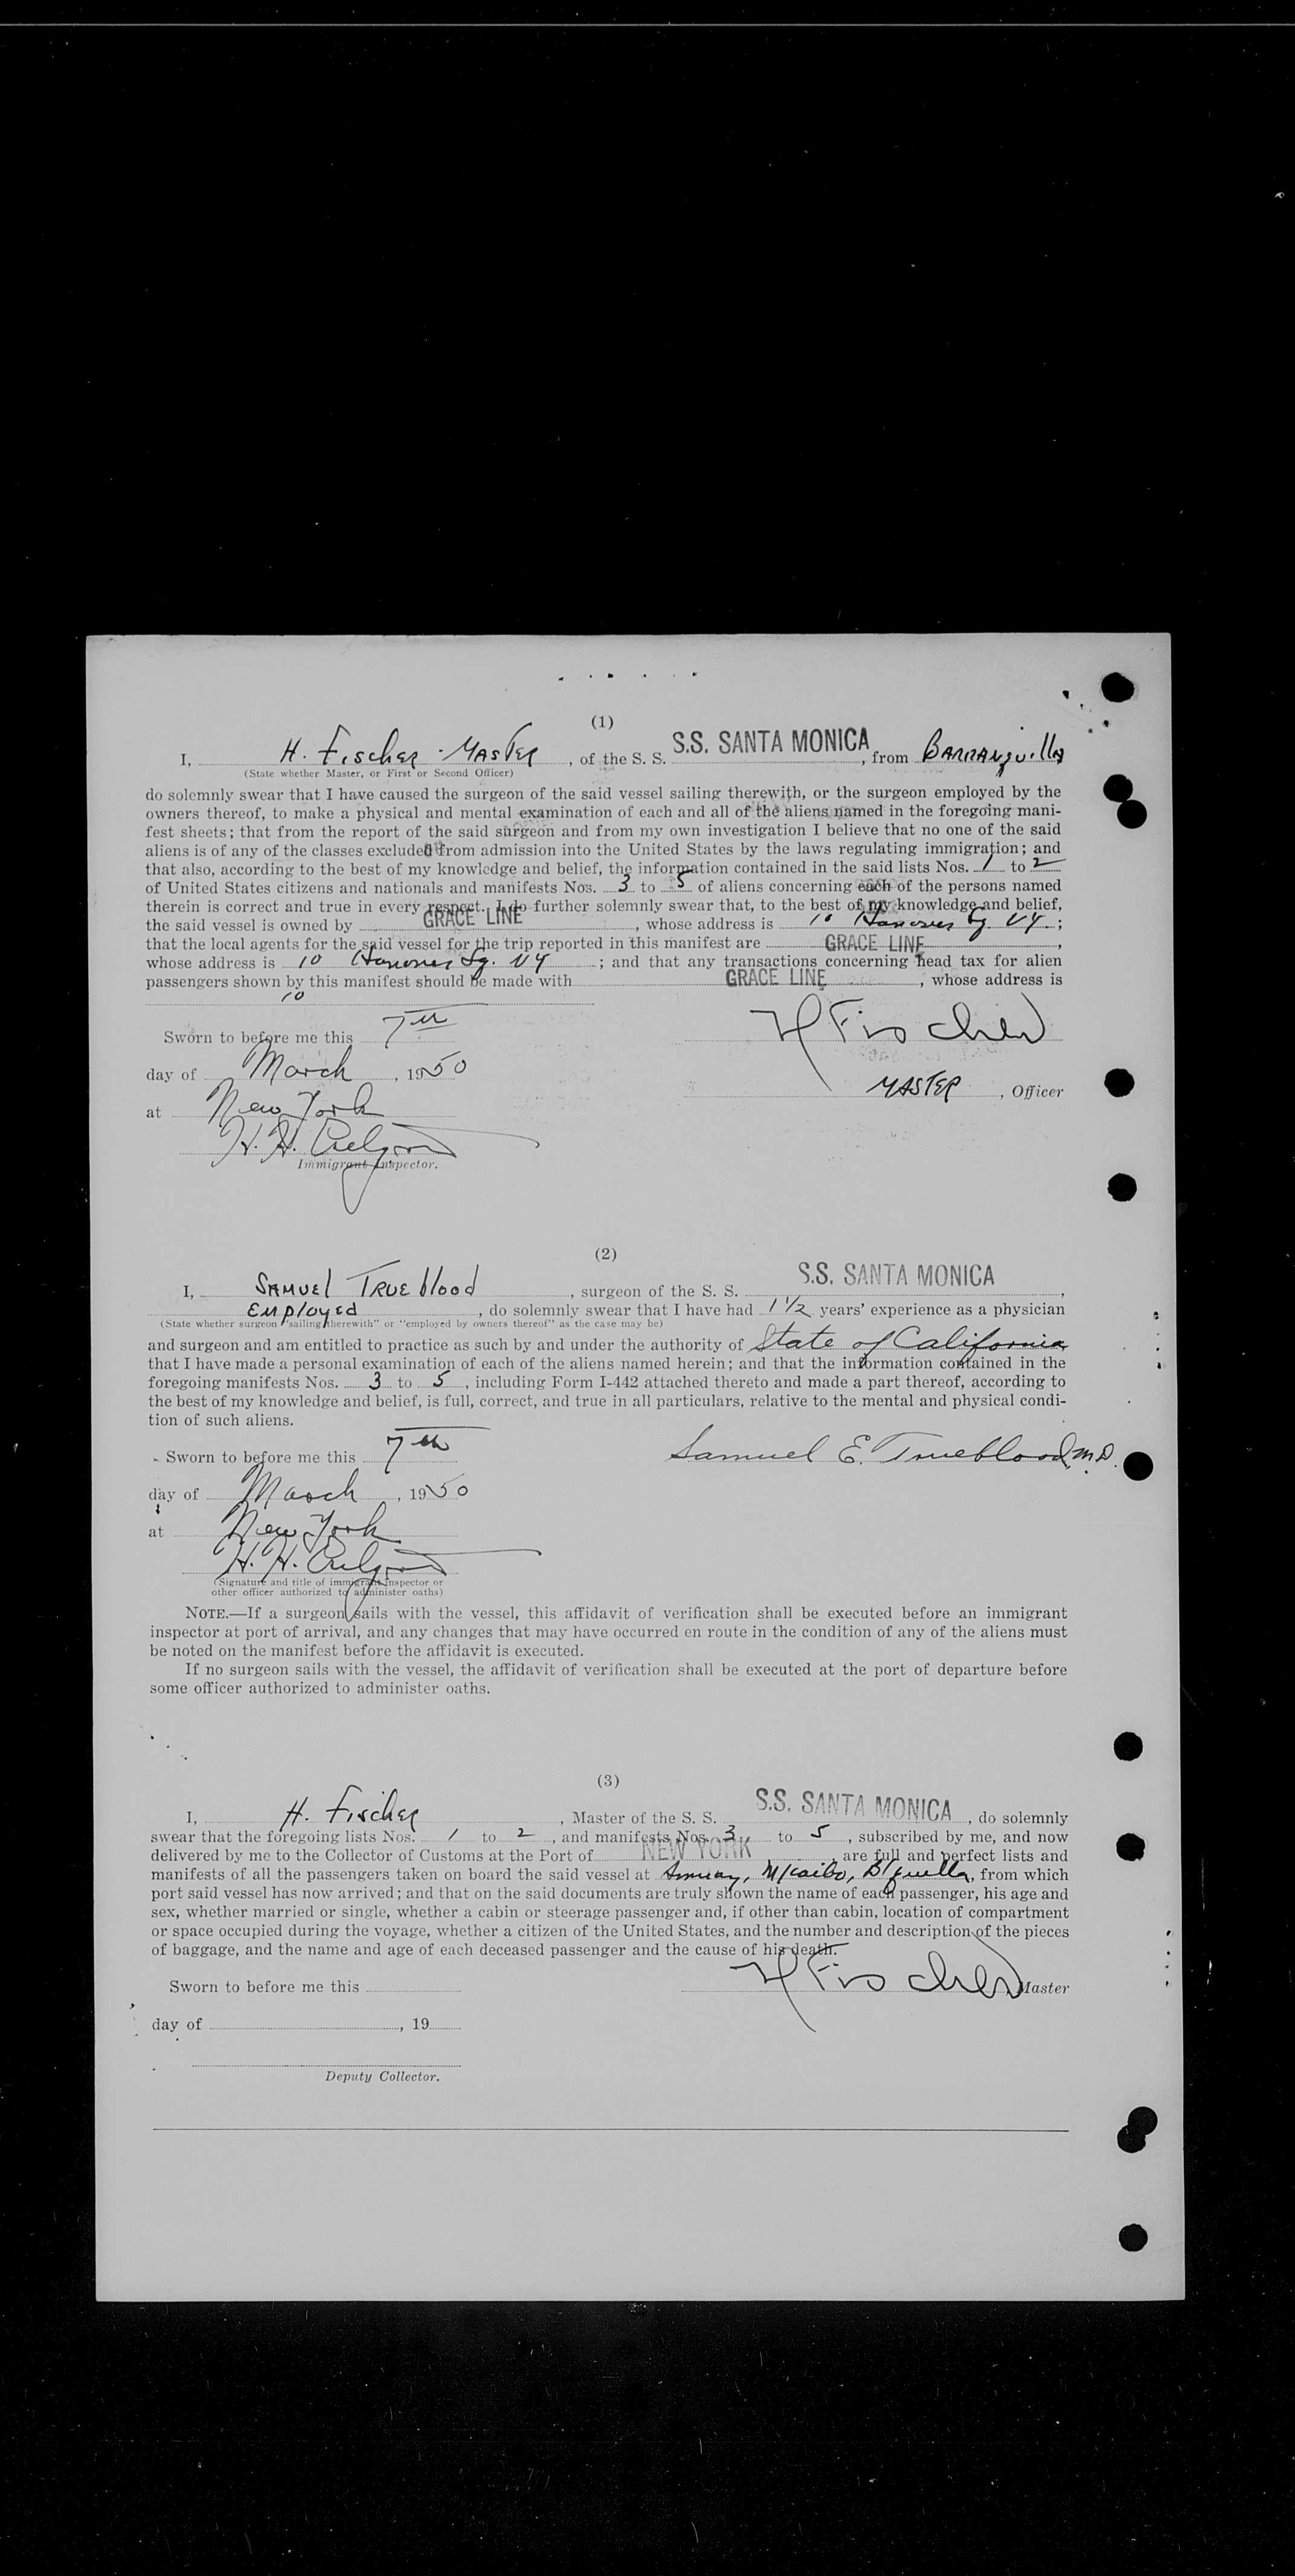 (1)
I, H. Fischer - MASTER, of the S. S. S.S. SANTA MONICA, from BARRANquilla
(State whether Master, or First or Second Officer)
do solemnly swear that I have caused the surgeon of the said vessel sailing therewith, or the surgeon employed by the
owners thereof, to make a physical and mental examination of each and all of the aliens named in the foregoing mani-
fest sheets; that from the report of the said surgeon and from my own investigation I believe that no one of the said
aliens is of any of the classes excluded from admission into the United States by the laws regulating immigration; and
that also, according to the best of my knowledge and belief, the information contained in the said lists Nos. 1 to 2
of United States citizens and nationals and manifests Nos. 3 to 5 of aliens concerning each of the persons named
therein is correct and true in every respect. I do further solemnly swear that, to the best of my knowledge and belief,
the said vessel is owned by GRACE LINE, whose address is 10 Hanover Sq. NY.;
that the local agents for the said vessel for the trip reported in this manifest are GRACE LINE,
whose address is 10 Hanover Sq. NY; and that any transactions concerning head tax for alien
passengers shown by this manifest should be made with GRACE LINE, whose address is
10
Sworn to before me this 7th
H Fischer
day of March, 1950
MASTER, Officer
at New York
H. H.
Immigrant Inspector.
(2)
I, SAMUEL TRUEblood, surgeon of the S. S. S.S. SANTA MONICA,
Employed, do solemnly swear that I have had 1 1/2 years' experience as a physician
(State whether surgeon "sailing therewith" or "employed by owners thereof" as the case may be)
and surgeon and am entitled to practice as such by and under the authority of State of California
that I have made a personal examination of each of the aliens named herein; and that the information contained in the
foregoing manifests Nos. 3 to 5, including Form I-442 attached thereto and made a part thereof, according to
the best of my knowledge and belief, is full, correct, and true in all particulars, relative to the mental and physical condi-
tion of such aliens.
Sworn to before me this 7th
Samuel E. Trueblood, M.D.
day of March, 1950
at New York
H. H.
(Signature and title of immigrant inspector or
other officer authorized to administer oaths)
NOTE.—If a surgeon sails with the vessel, this affidavit of verification shall be executed before an immigrant
inspector at port of arrival, and any changes that may have occurred en route in the condition of any of the aliens must
be noted on the manifest before the affidavit is executed.
If no surgeon sails with the vessel, the affidavit of verification shall be executed at the port of departure before
some officer authorized to administer oaths.
(3)
I, H. Fischer, Master of the S. S. S.S. SANTA MONICA, do solemnly
swear that the foregoing lists Nos. 1 to 2, and manifests Nos. 3 to 5, subscribed by me, and now
delivered by me to the Collector of Customs at the Port of NEW YORK, are full and perfect lists and
manifests of all the passengers taken on board the said vessel at Amuay, M/caibo, B/quilla, from which
port said vessel has now arrived; and that on the said documents are truly shown the name of each passenger, his age and
sex, whether married or single, whether a cabin or steerage passenger and, if other than cabin, location of compartment
or space occupied during the voyage, whether a citizen of the United States, and the number and description of the pieces
of baggage, and the name and age of each deceased passenger and the cause of his death.
H Fischer Master
Sworn to before me this
day of , 19
Deputy Collector.